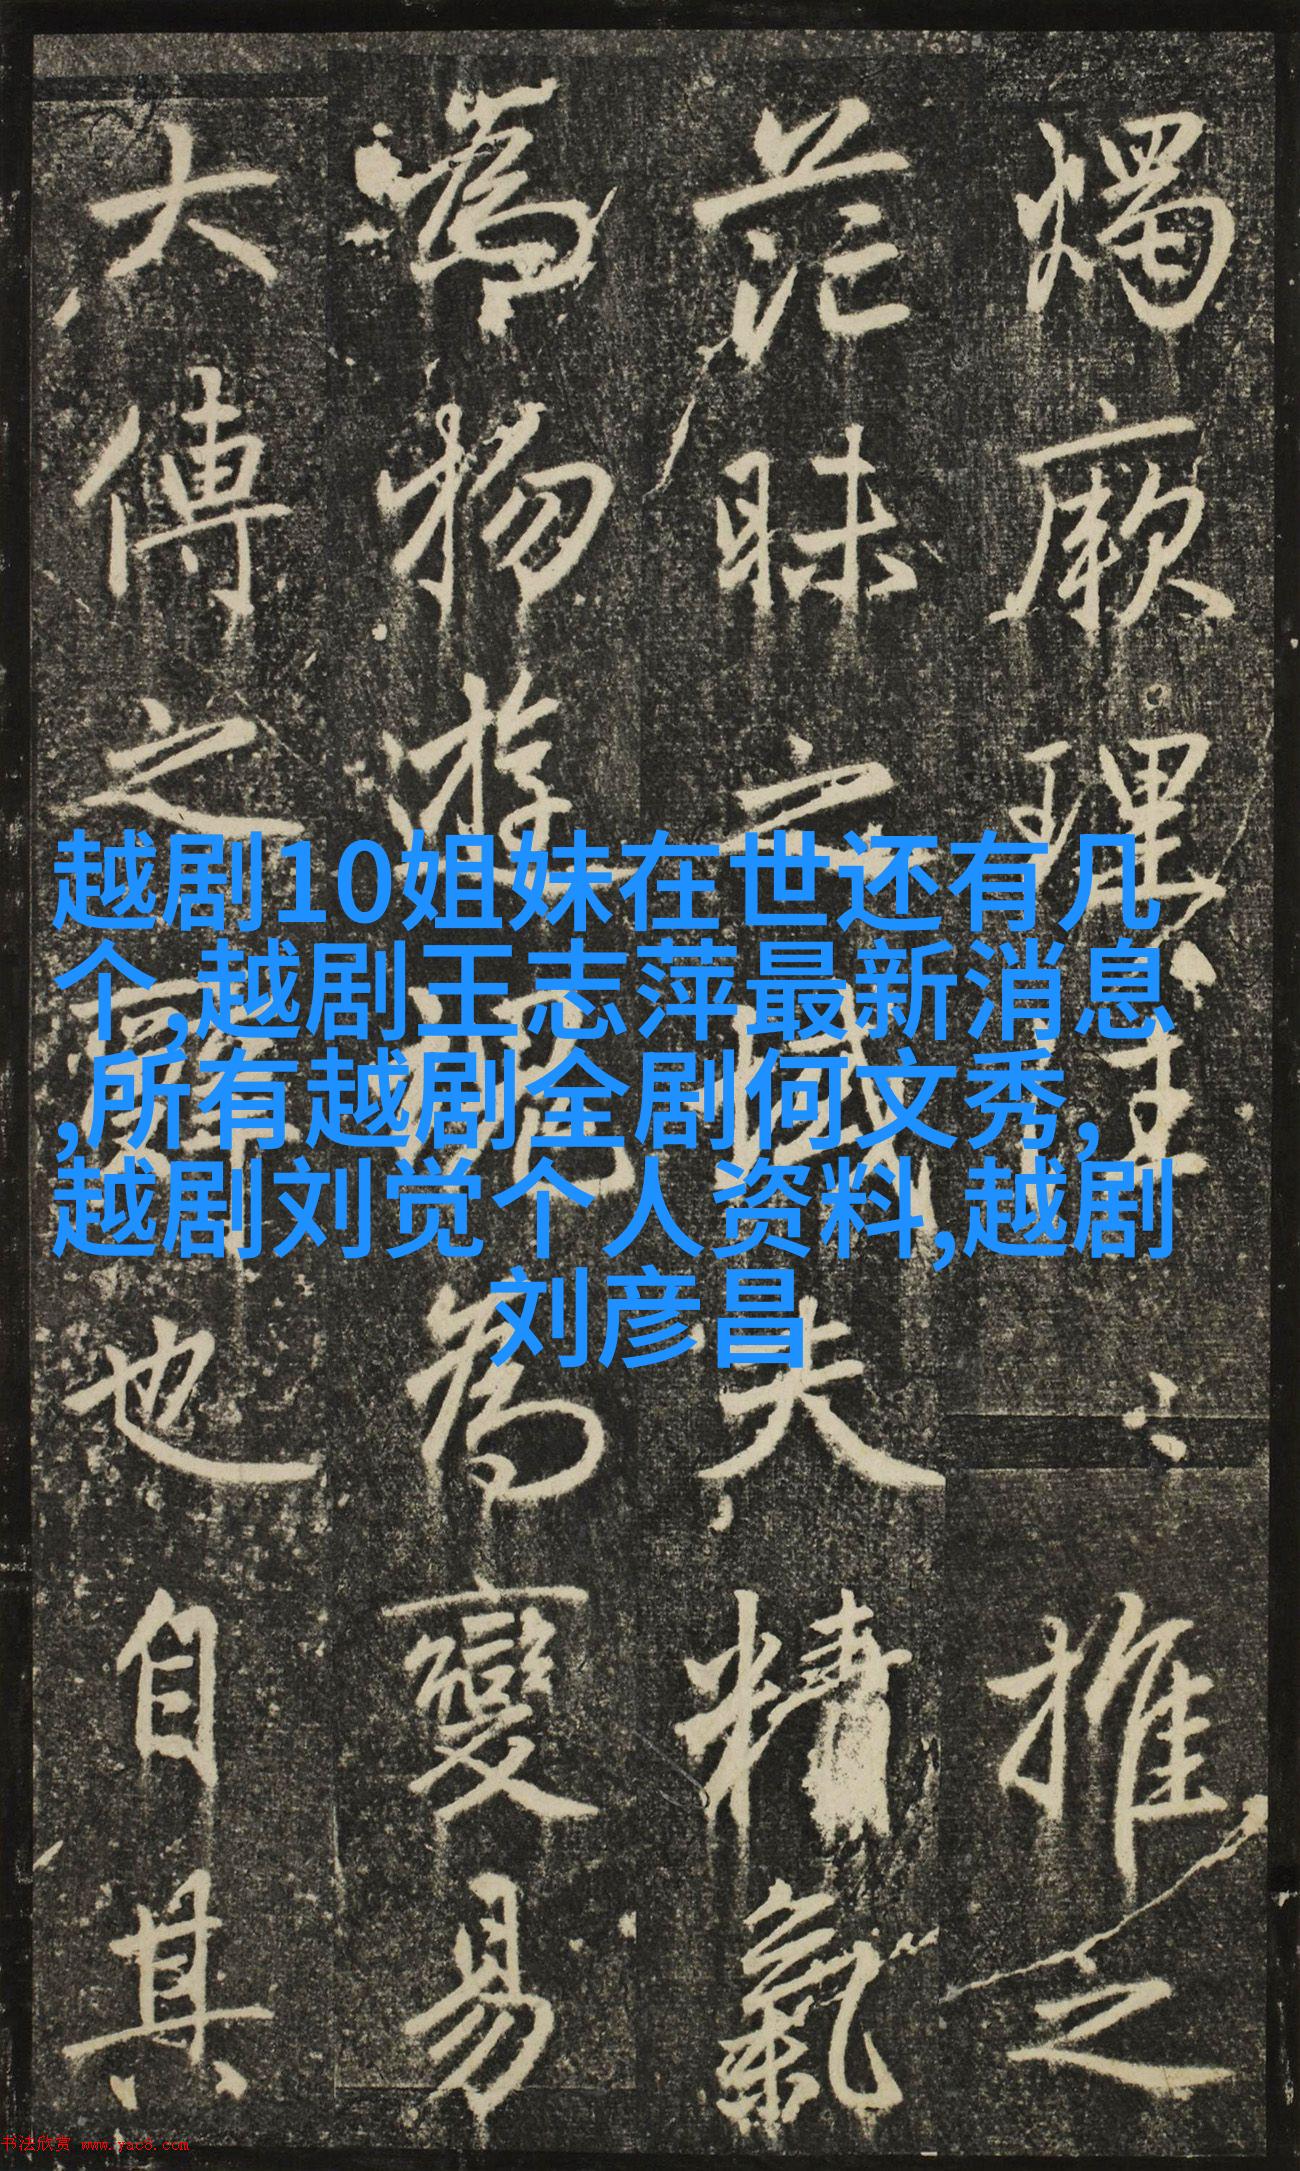 燭厥理至：推之
茫昧之域夫精氣
為物遊魂為變易
大傳之辭也自其
越剧10姐妹在世还有几
个,越剧王志萍最新消息
,所有越剧全剧何文秀,
越剧刘觉个人资料,越剧
刘彦昌
书法欣赏 www.yac8.com